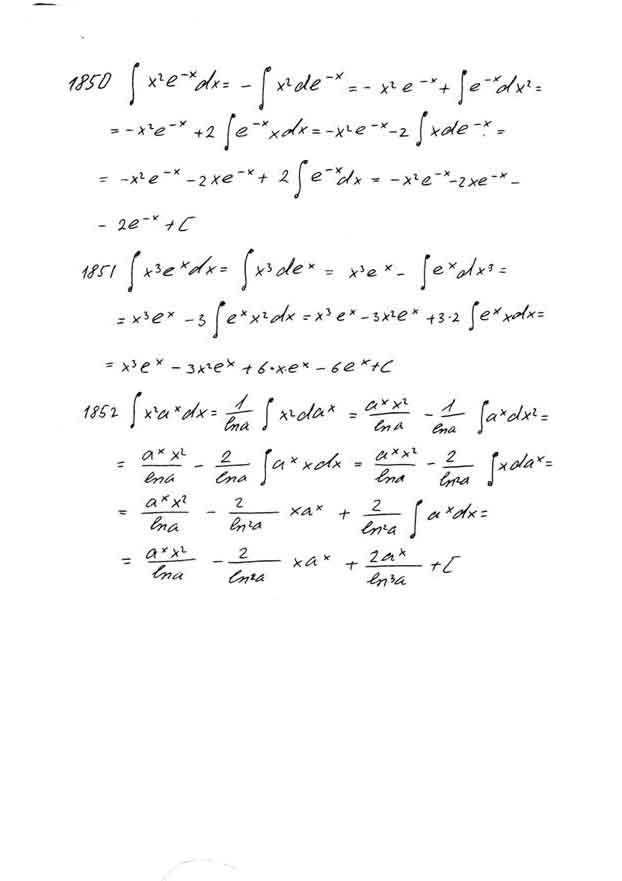 1850 ∫ x²e⁻ˣdx = - ∫ x²de⁻ˣ = - x²e⁻ˣ + ∫ e⁻ˣdx² =
= -x²e⁻ˣ + 2 ∫ e⁻ˣxdx = -x²e⁻ˣ - 2 ∫ xde⁻ˣ =
= -x²e⁻ˣ - 2xe⁻ˣ + 2 ∫ e⁻ˣdx = -x²e⁻ˣ - 2xe⁻ˣ -
- 2e⁻ˣ + C
1851 ∫ x³eˣdx = ∫ x³deˣ = x³eˣ - ∫ eˣdx³ =
= x³eˣ - 3 ∫ eˣx²dx = x³eˣ - 3x²eˣ + 3·2 ∫ eˣxdx =
= x³eˣ - 3x²eˣ + 6·x·eˣ - 6eˣ + C
1852 ∫ x²aˣdx = 1/lna ∫ x²daˣ = aˣx²/lna - 1/lna ∫ aˣdx² =
= aˣx²/lna - 2/lna ∫ aˣxdx = aˣx²/lna - 2/ln²a ∫ xdaˣ =
= aˣx²/lna - 2/ln²a xaˣ + 2/ln²a ∫ aˣdx =
= aˣx²/lna - 2/ln²a xaˣ + 2aˣ/ln³a + C